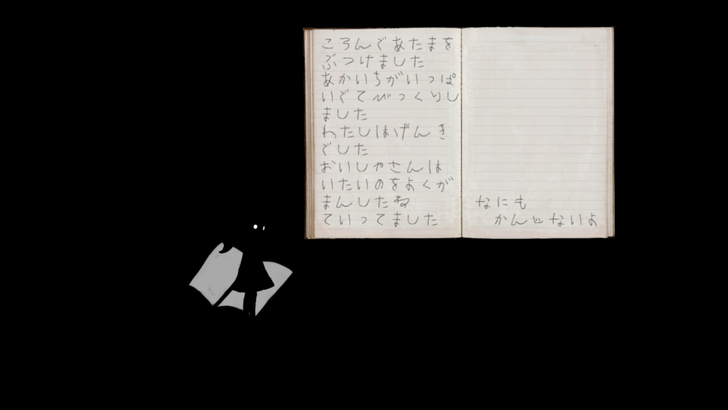 ころんであたまを
ぶつけました
あかいちがいっぱ
いでてびっくりし
ました
わたしはげんき
でした
おいしゃさんは
いたいのをよくが
まんしたね
ていってました
なにも
かんじないよ